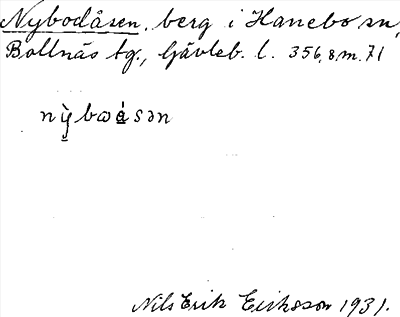 Nybodåsen, berg i Hanebo sn,
Bollnäs tg., Gävleb. l. 356,8 m. 71
nỳ̠bωá̤sən
Nils Erik Eriksson 1931.